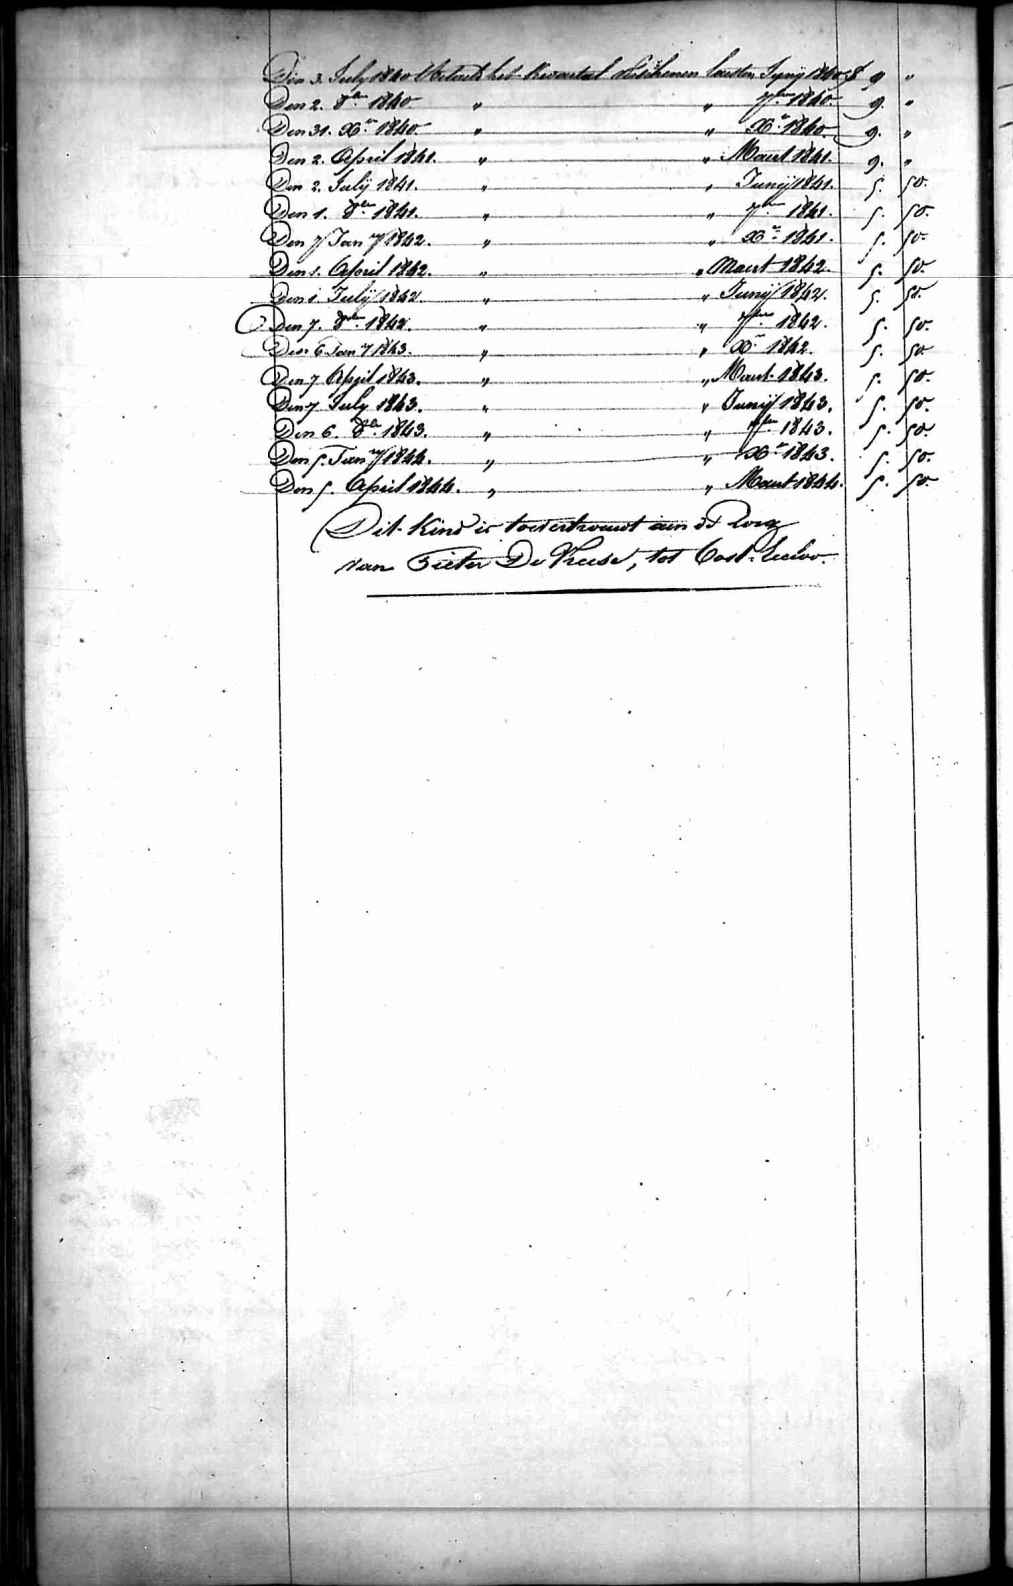 Den 3. July 1840 Betaelt het kwartael verschenen laesten Junij 1840 f 9 "
Den 2. 8ber 1840 " " 7ber 1840 9. "
Den 31. Xber 1840 " " Xber 1840 9. "
Den 2. April 1841. " " Maert 1841 9. "
Den 2. Julij 1841. " " Junij 1841. 5. 50.
Den 1. 8ber 1841. " " 7ber 1841. 5. 50.
Den 7 Janry 1842. " " Xber 1841. 5. 50.
Den 1. April 1842. " " Maert 1842. 5. 50.
Den 1 July 1842. " " Junij 1842. 5. 50.
Den 7. 8ber 1842. " " 7ber 1842. 5. 50.
Den 6 Janry 1843. " " Xber 1842. 5. 50
Den 7 April 1843. " " Maert 1843. 5. 50.
Den 7 July 1843. " " Junij 1843. 5. 50.
Den 6. 8ber 1843. " " 7ber 1843. 5. 50.
Den 5. Janry 1844. " " Xber 1843. 5. 50.
Den 5. April 1844. " " Maert 1844. 5. 50.
Dit kind is toevertrouwt aen de zorg
van Pieter De Vreese, tot Oost-Eecloo.